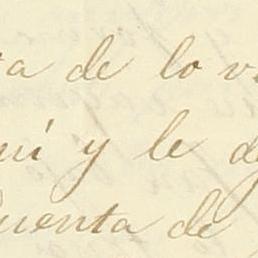 ta de lo v
uí y le d
Cuenta de